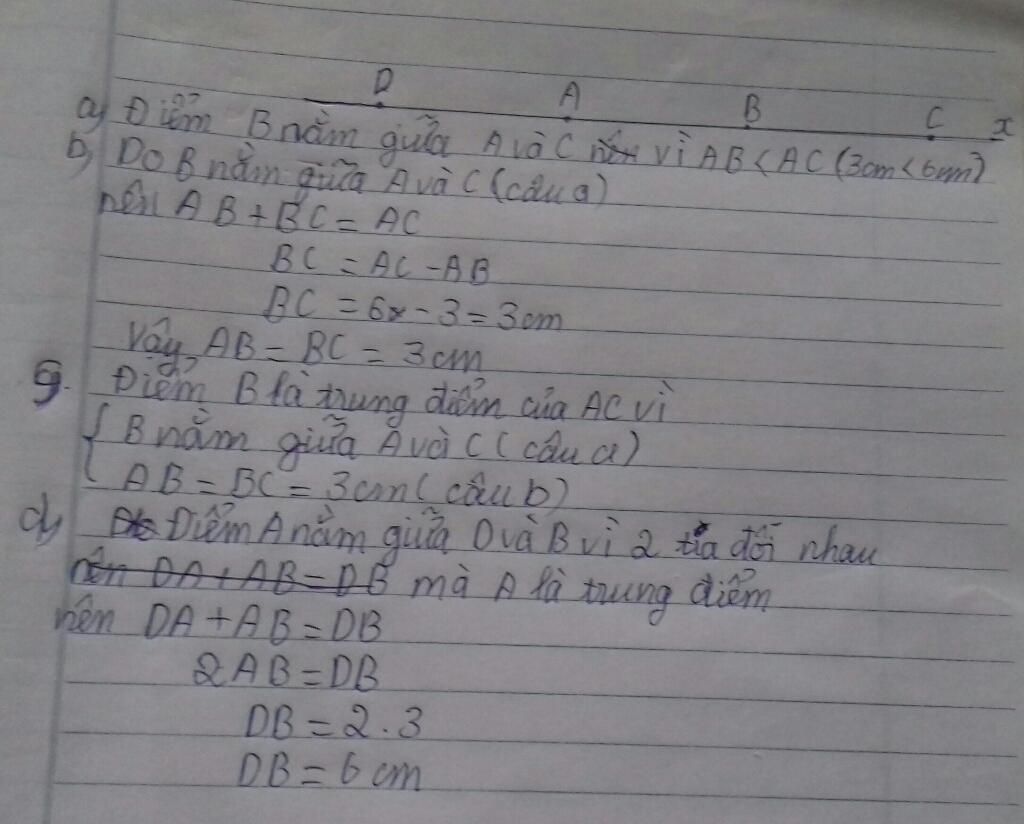 D A B C x
a) Điểm B nằm giữa A và C vì AB < AC (3cm < 6cm)
b) Do B nằm giữa A và C (câu a)
nên AB + BC = AC
BC = AC - AB
BC = 6 - 3 = 3cm
Vậy AB = BC = 3cm
g. Điểm B là trung điểm của AC vì
{ B nằm giữa A và C (câu a)
AB = BC = 3cm (câu b)
d) Điểm A nằm giữa D và B vì 2 tia đối nhau
nên DA + AB = DB mà A là trung điểm
nên DA + AB = DB
2AB = DB
DB = 2.3
DB = 6 cm